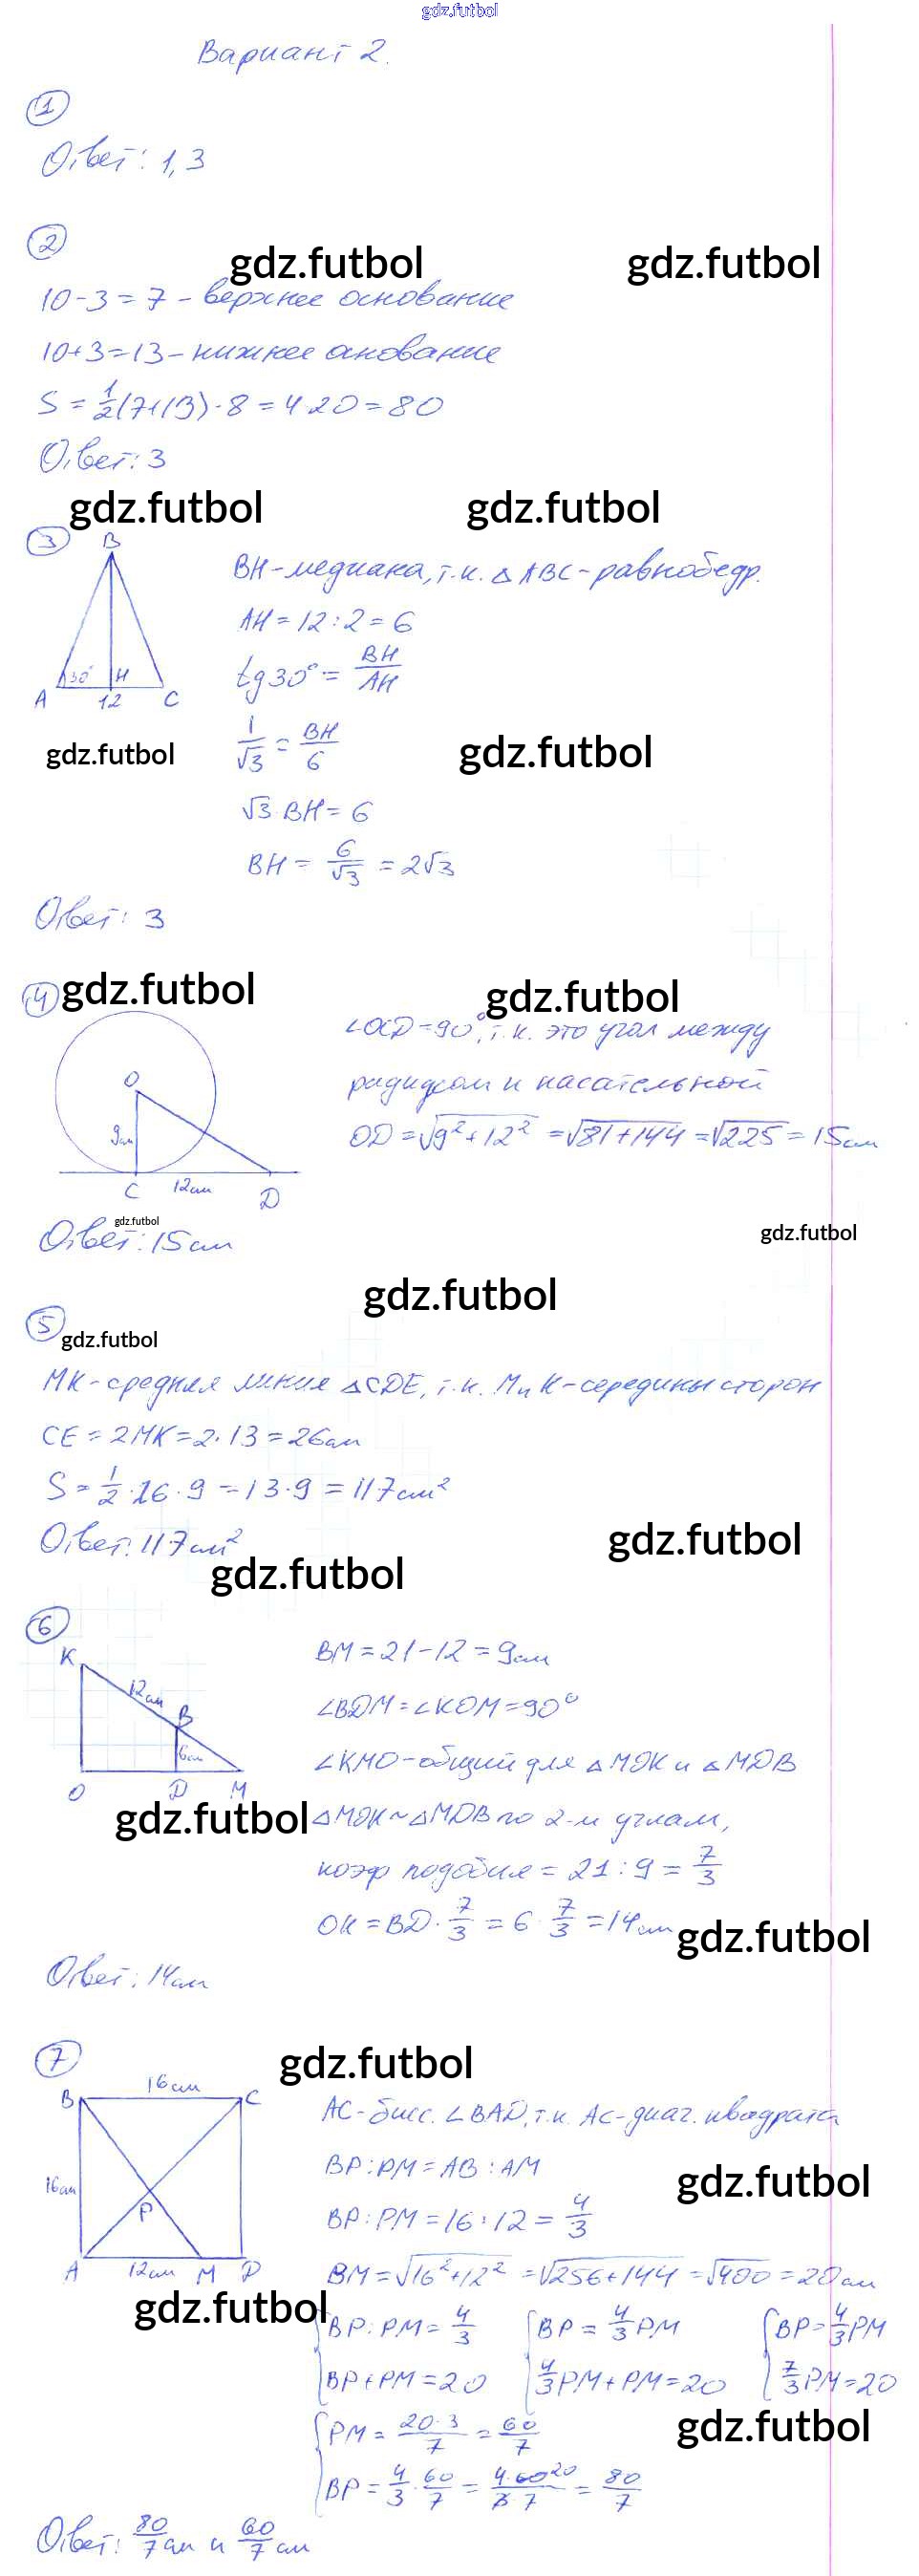 gdz.futbol
Вариант 2.
1
Ответ: 1,3
2
gdz.futbol gdz.futbol
10-3=7 - верхнее основание
10+3=13 - нижнее онование
S = 1/2(7+13)·8 = 4·20 = 80
Ответ: 3
gdz.futbol gdz.futbol
3
B
30° H
A 12 C
BH - медиана, т.к. △ABC - равнобедр.
AH = 12 : 2 = 6
tg30° = BH/AH
1/√3 = BH/6
gdz.futbol gdz.futbol
√3·BH = 6
BH = 6/√3 = 2√3
Ответ: 3
4 gdz.futbol gdz.futbol
O
9см
C 12см D
∠OCD = 90°, т.к. это угол между
радиусом и касательной
OD = √9²+12² = √81+144 = √225 = 15см
gdz.futbol
Ответ: 15см
gdz.futbol
gdz.futbol
5
gdz.futbol
MK - средняя линия △CDE, т.к. M и K - середины сторон
CE = 2MK = 2·13 = 26см
S = 1/2·26·9 = 13·9 = 117см²
Ответ: 117см²
gdz.futbol
gdz.futbol
6
K
12см
B
6см
O D M
BM = 21-12 = 9см
∠BDM = ∠KOM = 90°
∠KMO - общий для △MOK и △MDB
gdz.futbol
△MOK ~ △MDB по 2-м углам,
коэф подобия = 21 : 9 = 7/3
OK = BD·7/3 = 6·7/3 = 14см
gdz.futbol
Ответ: 14см
7
gdz.futbol
16см
B C
16см
P
A 12см M D
AC - бисс. ∠BAD, т.к. AC - диаг. квадрата
BP : PM = AB : AM
gdz.futbol
BP : PM = 16 : 12 = 4/3
BM = √16²+12² = √256+144 = √400 = 20см
gdz.futbol
{BP : PM = 4/3 {BP = 4/3PM {BP = 4/3PM
BP + PM = 20 4/3PM + PM = 20 7/3PM = 20
gdz.futbol
{PM = 20·3/7 = 60/7
BP = 4/3·60/7 = 4·60 20/3·7 = 80/7
Ответ: 80/7см и 60/7см